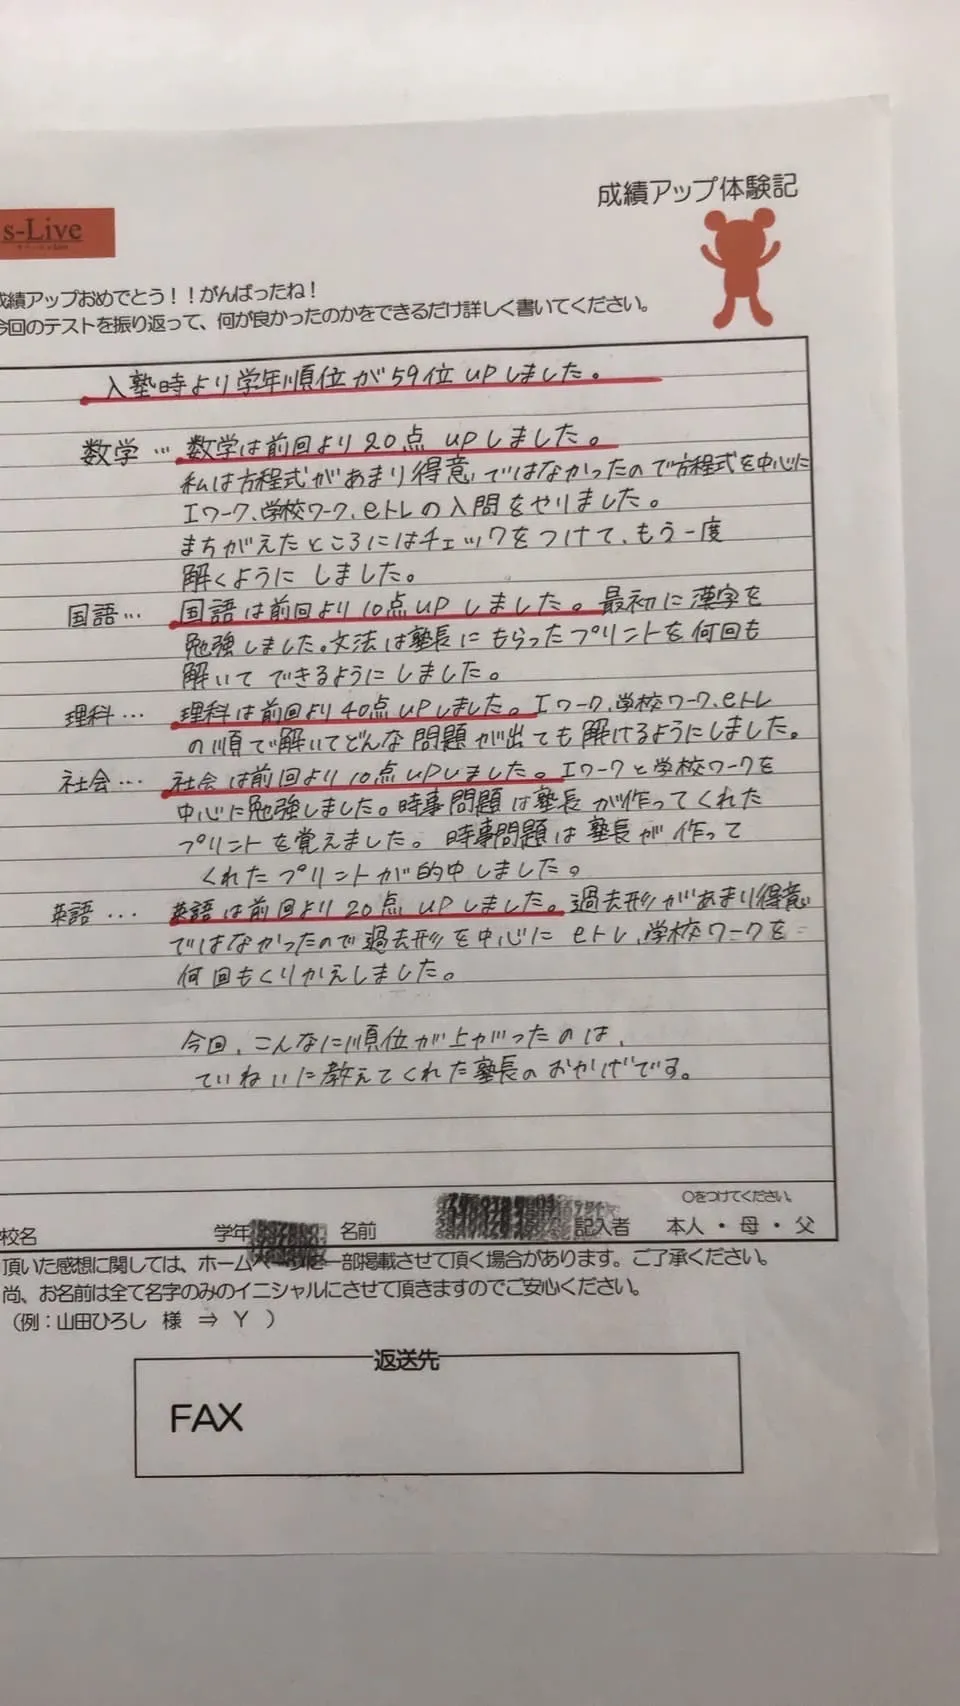 成績アップ体験記
s-Live
成績アップおめでとう！！がんばったね！
今回のテストを振り返って、何が良かったのかをできるだけ詳しく書いてください。
入塾時より学年順位が59位upしました。
数学… 数学は前回より20点upしました。
私は方程式があまり得意ではなかったので方程式を中心に
Iワーク、学校ワーク、eトレの入問をやりました。
まちがえたところにはチェックをつけて、もう一度
解くようにしました。
国語… 国語は前回より10点upしました。最初に漢字を
勉強しました。文法は塾長にもらったプリントを何回も
解いてできるようにしました。
理科… 理科は前回より40点upしました。Iワーク、学校ワーク、eトレ
の順で解いてどんな問題が出ても解けるようにしました。
社会… 社会は前回より10点upいました。Iワークと学校ワークを
中心に勉強しました。時事問題は塾長が作ってくれた
プリントを覚えました。時事問題は塾長が作って
くれたプリントが的中しました。
英語… 英語は前回より20点upしました。過去形があまり得意
ではなかったので過去形を中心にeトレ、学校ワークを
何回もくりかえしました。
今回、こんなに順位が上がったのは、
ていねいに教えてくれた塾長のおかげです。
○をつけてください。
校名 学年 名前 記入者 本人・母・父
頂いた感想に関しては、ホームページに一部掲載させて頂く場合があります。ご了承ください。
尚、お名前は全て名字のみのイニシャルにさせて頂きますのでご安心ください。
（例：山田ひろし 様 ⇒ Y ）
返送先
FAX